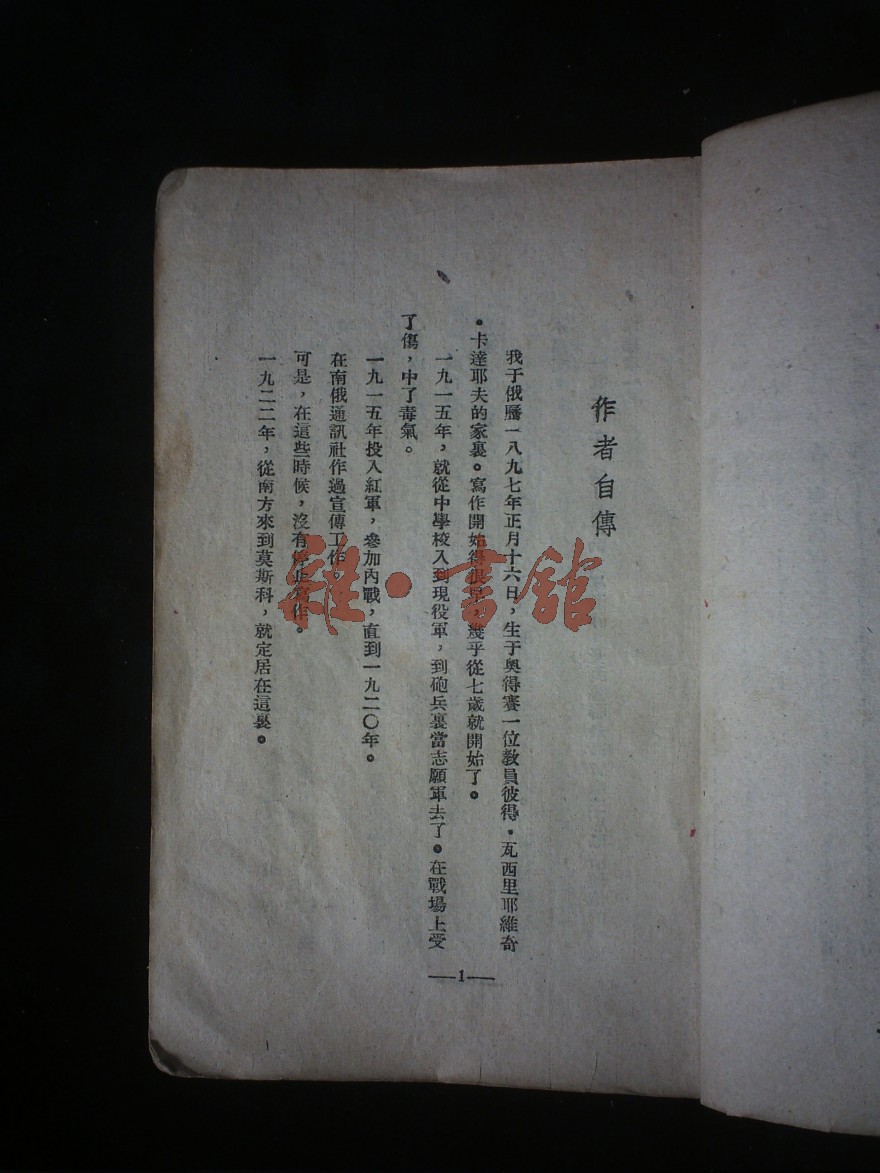 作者自傳
我于俄曆一八九七年正月十六日，生于奥得賽一位教員彼得·瓦西里耶維奇
·卡達耶夫的家裏。寫作開始得很早，幾乎從七歲就開始了。
一九一五年，就從中學校入到現役軍，到砲兵裏當志願軍去了。在戰場上受
了傷，中了毒氣。
一九一五年投入紅軍，參加內戰，直到一九二〇年。
在南俄通訊社作過宣傳工作。
可是，在這些時候，沒有停止寫作。
一九二二年，從南方來到莫斯科，就定居在這裏。
—1—
雜·書館